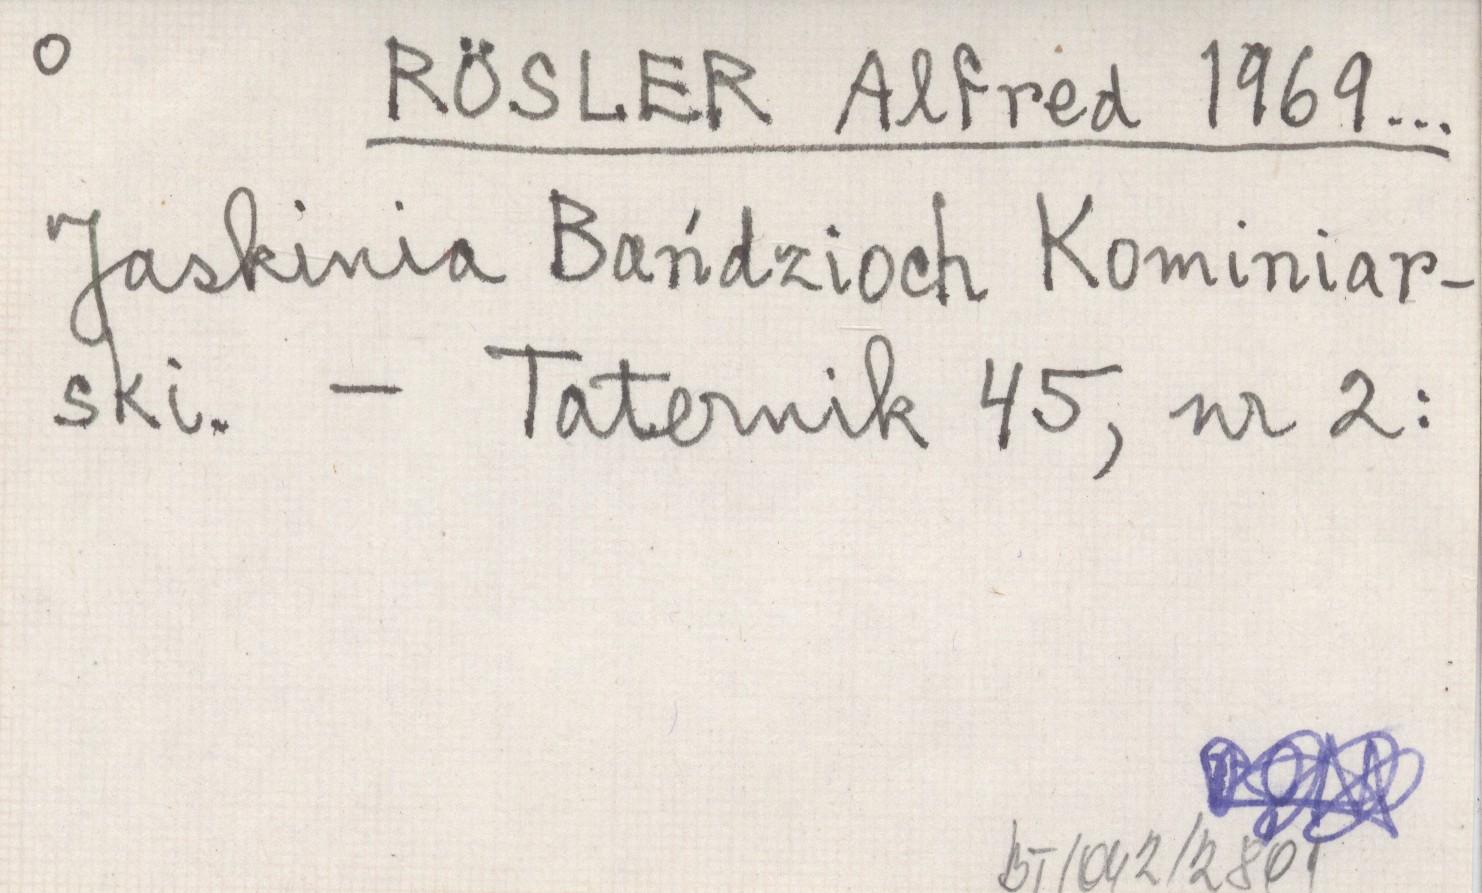 o RÖSLER Alfred 1969...
Jaskinia Bańdzioch Kominiar-
ski. – Taternik 45, nr 2:
BT/042/2801